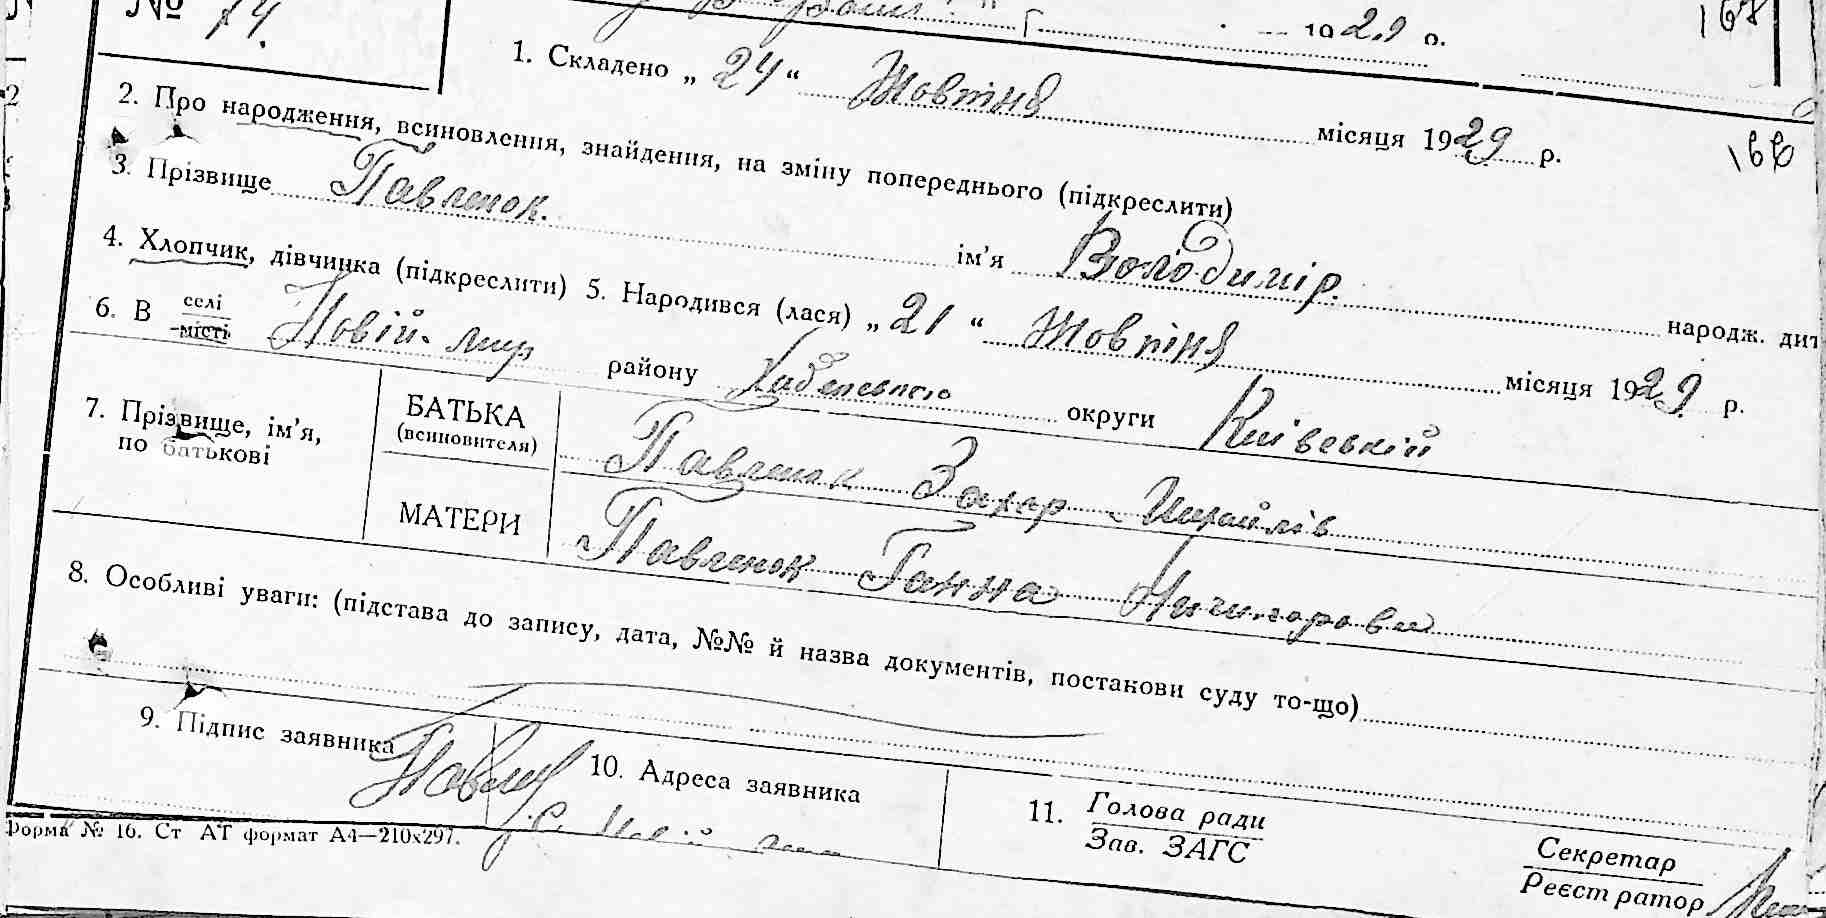 № 74.
1929 р.
168
1. Складено „ 24 “ Жовтня місяця 1929 р.
166
2. Про народження, всиновлення, знайдення, на зміну попереднього (підкреслити)
3. Прізвище Павленок. ім’я Володимір. народж. дит
4. Хлопчик, дівчинка (підкреслити) 5. Народився (лася) „ 21 “ Жовтня місяця 1929 р.
6. В селі місті Новій-мир району Хабенського округи Київській
7. Прізвище, ім’я, по батькові
БАТЬКА (всиновителя) Павленок Захар Михайлів
МАТЕРИ Павленок Ганна Ничипорова
8. Особливі уваги: (підстава до запису, дата, №№ й назва документів, постанови суду то-що)
9. Підпис заявника
10. Адреса заявника
с. Новій мир
11. Голова ради
Зав. ЗАГС
Секретар
Реєстратор
Форма № 16. Ст АТ формат А4—210х297.